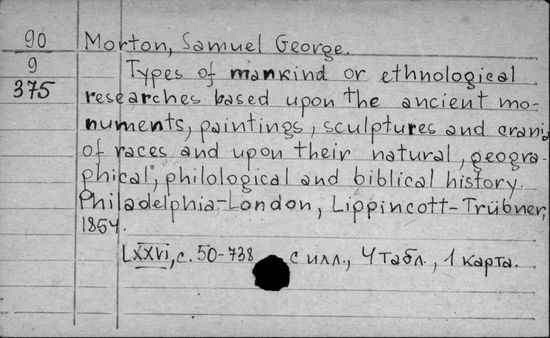 90 Morton, Samuel George.
9 Types of mankind or ethnological
375 researches based upon the ancient mo-
numents, paintings, sculptures and crania
of races and upon their natural, geogra-
phical, philological and biblical history.
Philadelphia-London, Lippincott-Trübner,
1854.
LXXVI, c. 50-738 с илл., 4 табл., 1 карта.